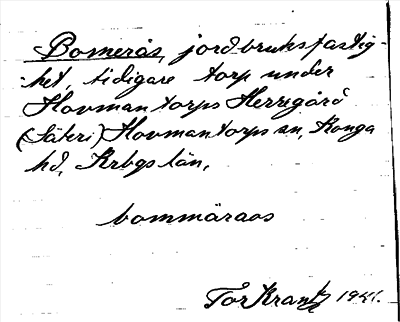 Bomerås, jordbruksfastig-
het, tidigare torp under
Hovmantorps Herregård
(Säteri) Hovmantorps sn, Konga
hd, Krbgs län,
bommäraos
Tor Krantz 1941.